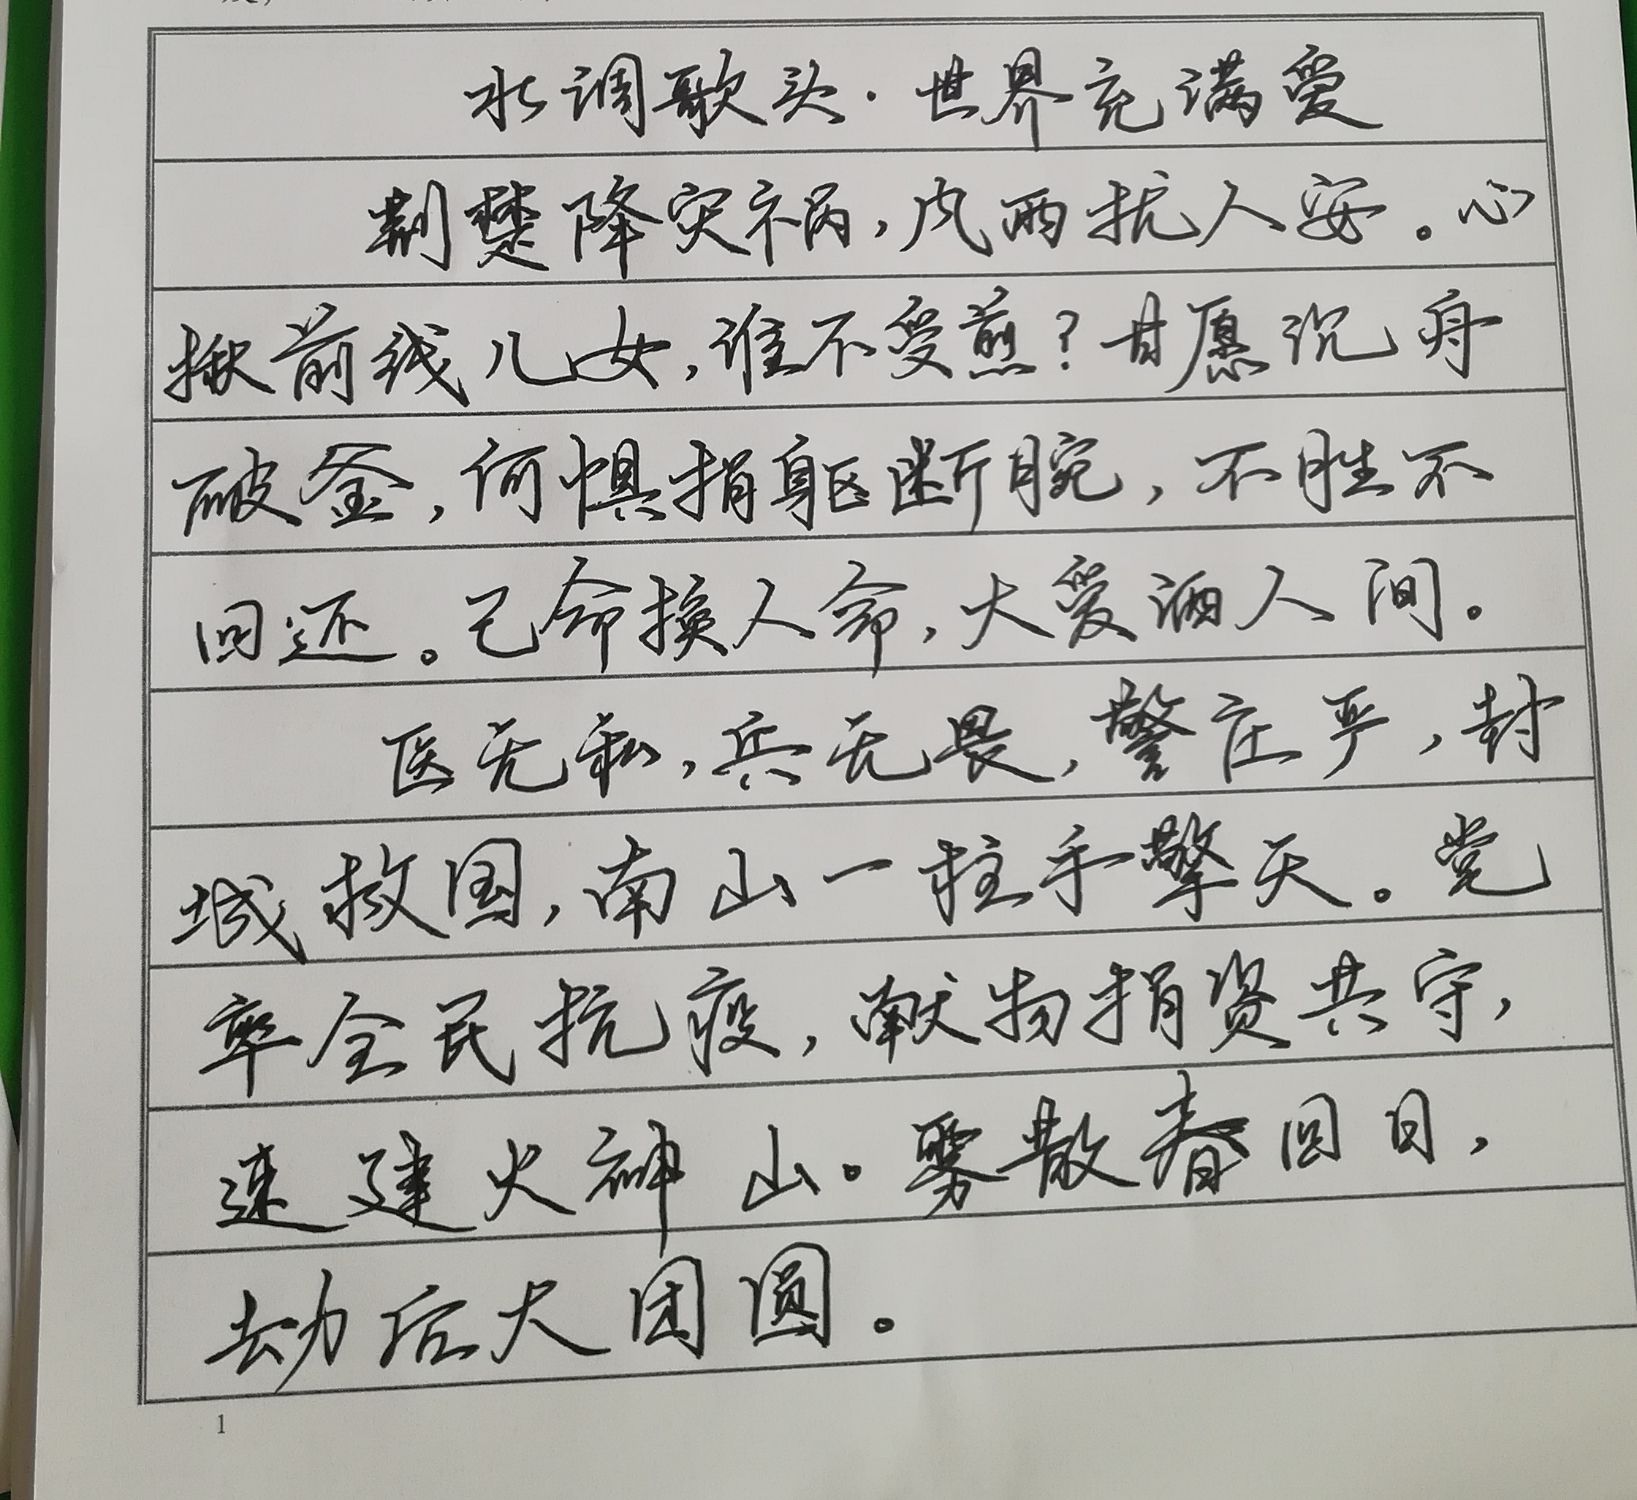 水调歌头·世界充满爱
荆楚降灾祸,风雨扰人安。心
揪前线儿女,谁不受煎?甘愿沉舟
破釜,何惧捐躯断腕,不胜不
回还。己命换人命,大爱洒人间。
医无私,兵无畏,警庄严,封
城救国,南山一柱手擎天。党
率全民抗疫,献物捐资共守,
速建火神山。雾散春回日,
劫后大团圆。
1